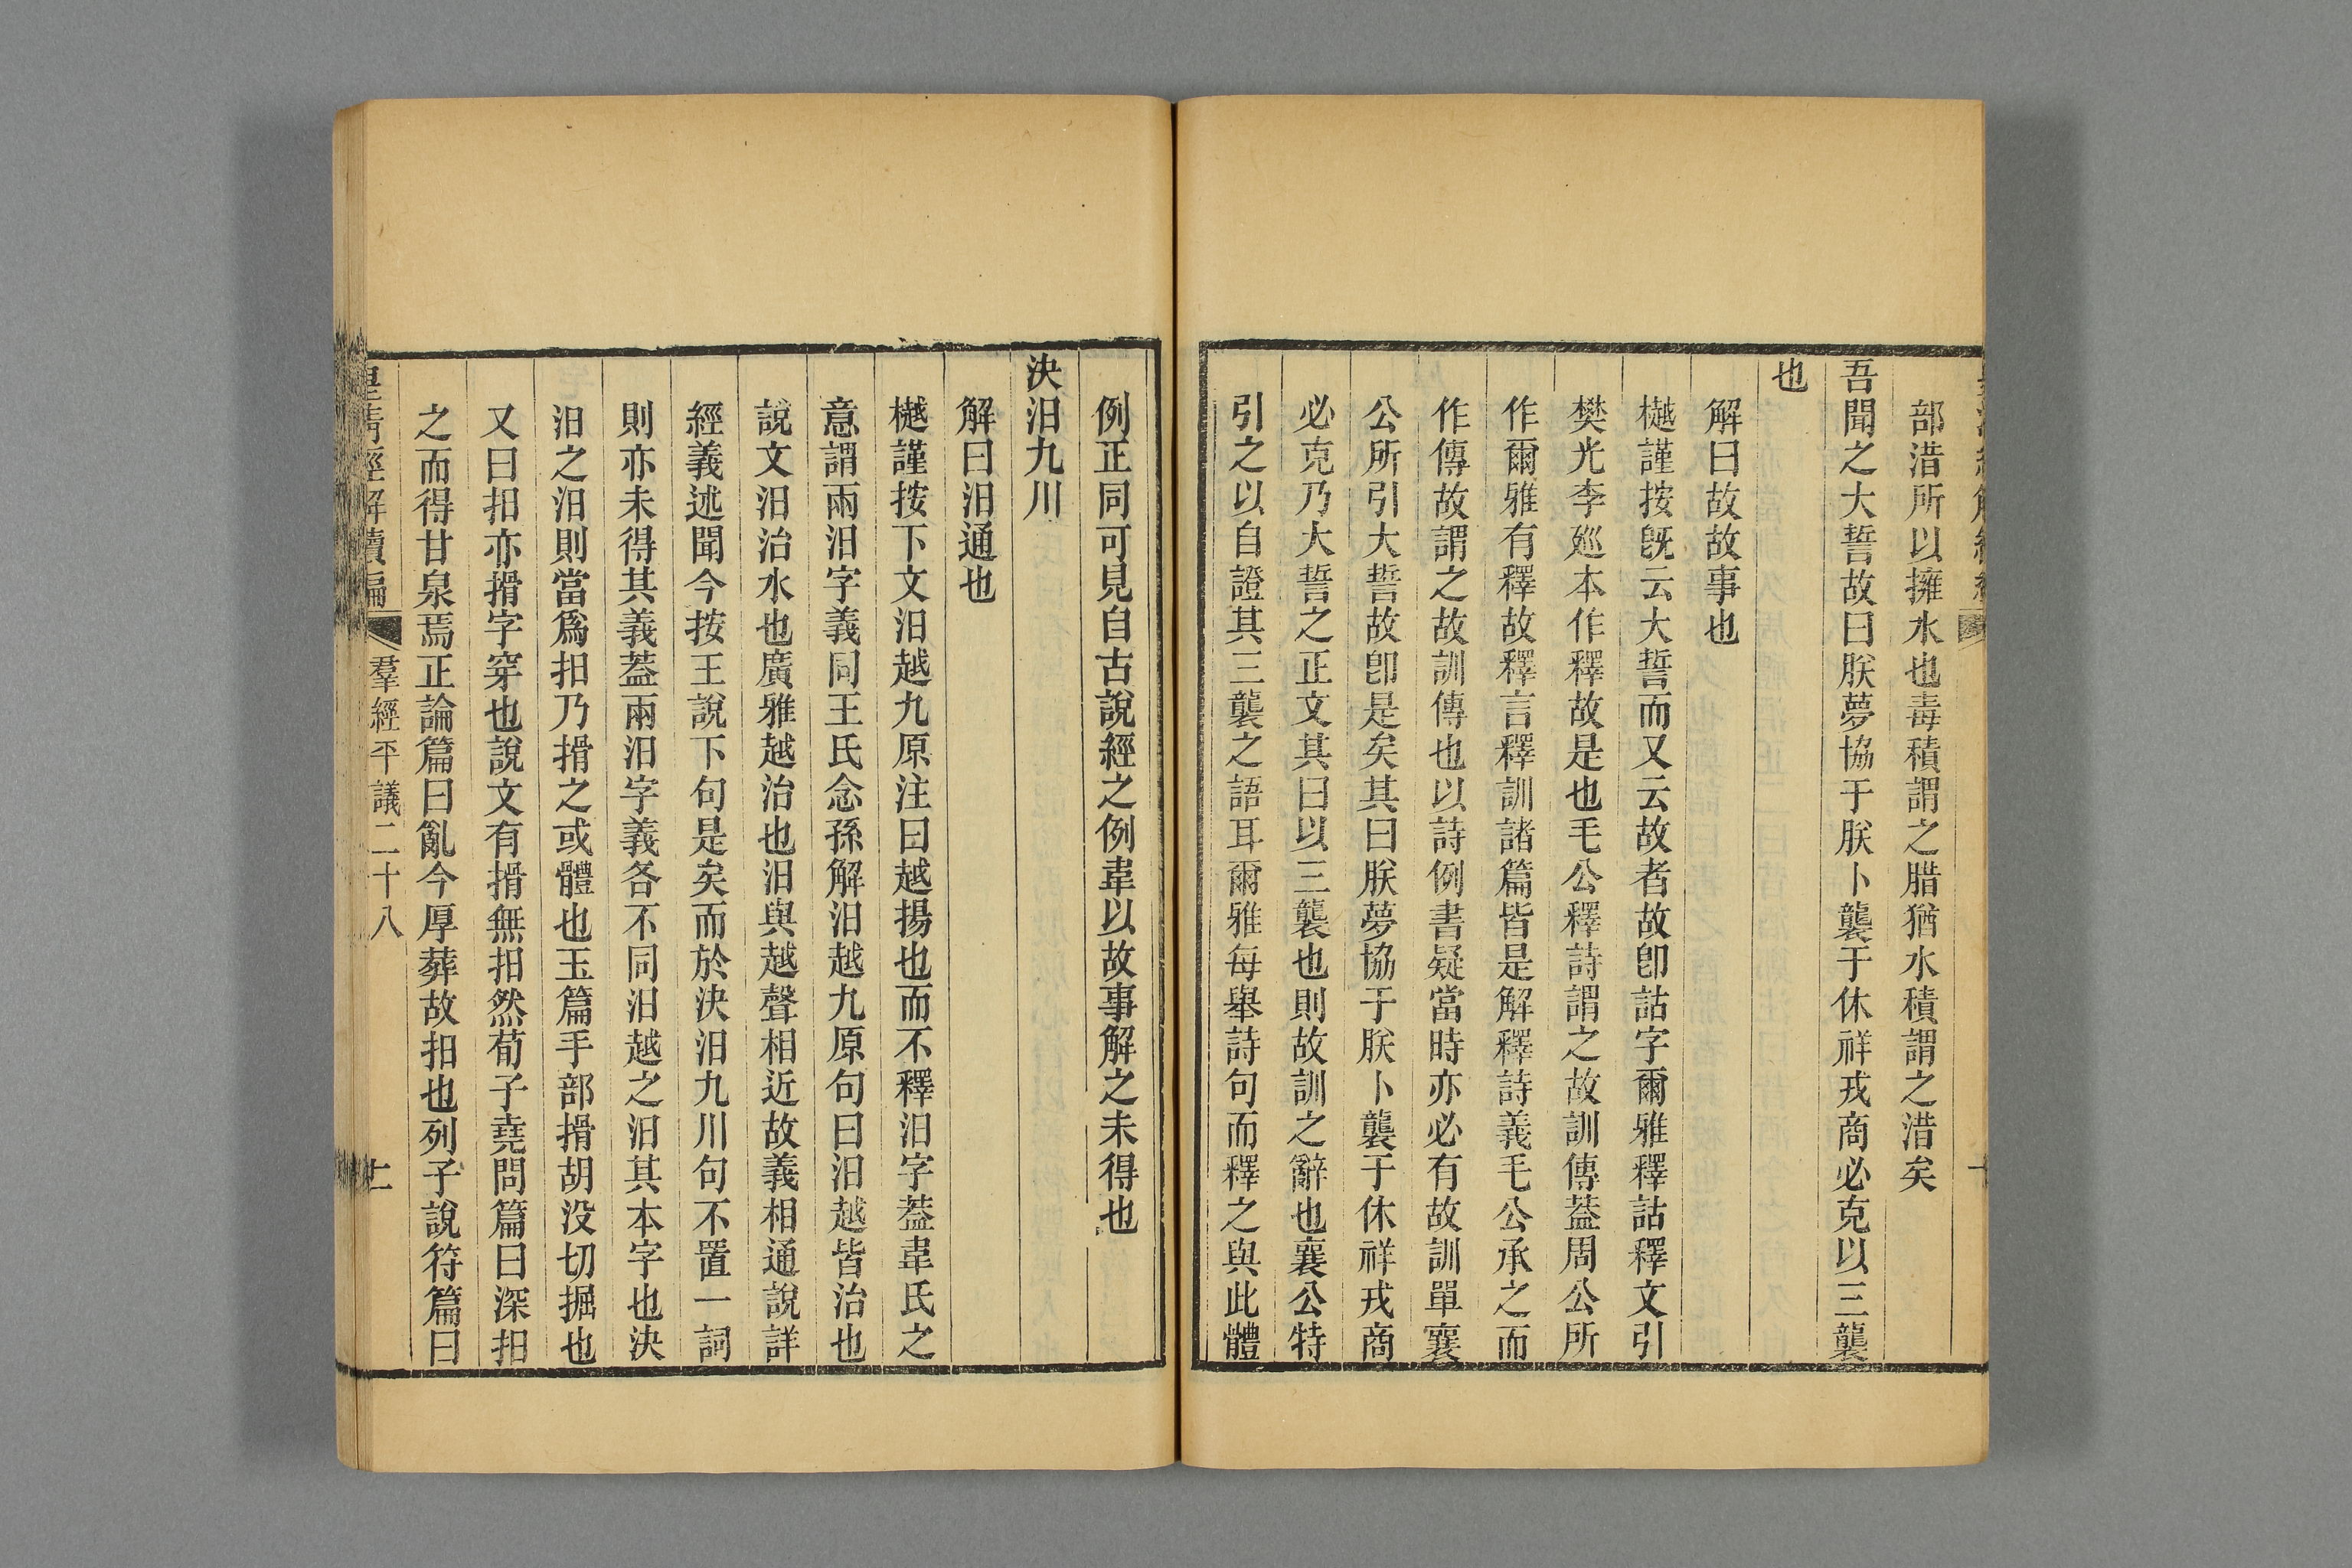 部浩所以擁水也毒積謂之腊猶水積謂之浩矣
吾聞之大誓故曰朕夢協于朕卜襲于休祥戎商必克以三襲
也
解曰故故事也
樾謹按旣云大誓而又云故者故卽詁字爾雅釋詁釋文引
樊光李廵本作釋故是也毛公釋詩謂之故訓傳葢周公所
作爾雅有釋故釋言釋訓諸篇皆是解釋詩義毛公承之而
作傳故謂之故訓傳也以詩例書疑當時亦必有故訓單襄
公所引大誓故卽是矣其曰朕夢協于朕卜襲于休祥戎商
必克乃大誓之正文其曰以三襲也則故訓之辭也襄公特
引之以自證其三襲之語耳爾雅每舉詩句而釋之與此體
例正同可見自古說經之例韋以故事解之未得也
決汩九川
解曰汩通也
樾謹按下文汩越九原注曰越揚也而不釋汩字葢韋氏之
意謂兩汩字義同王氏念孫解汩越九原句曰汩越皆治也
說文汩治水也廣雅越治也汩與越聲相近故義相通說詳
經義述聞今按王說下句是矣而於決汩九川句不置一詞
則亦未得其義葢兩汩字義各不同汩越之汩其本字也決
汩之汩則當爲抇乃搰之或體也玉篇手部搰胡没切掘也
又曰抇亦搰字穿也說文有搰無抇然荀子堯問篇曰深抇
之而得甘泉焉正論篇曰亂今厚葬故抇也列子說符篇曰
皇淸經解續編
羣經平議二十八